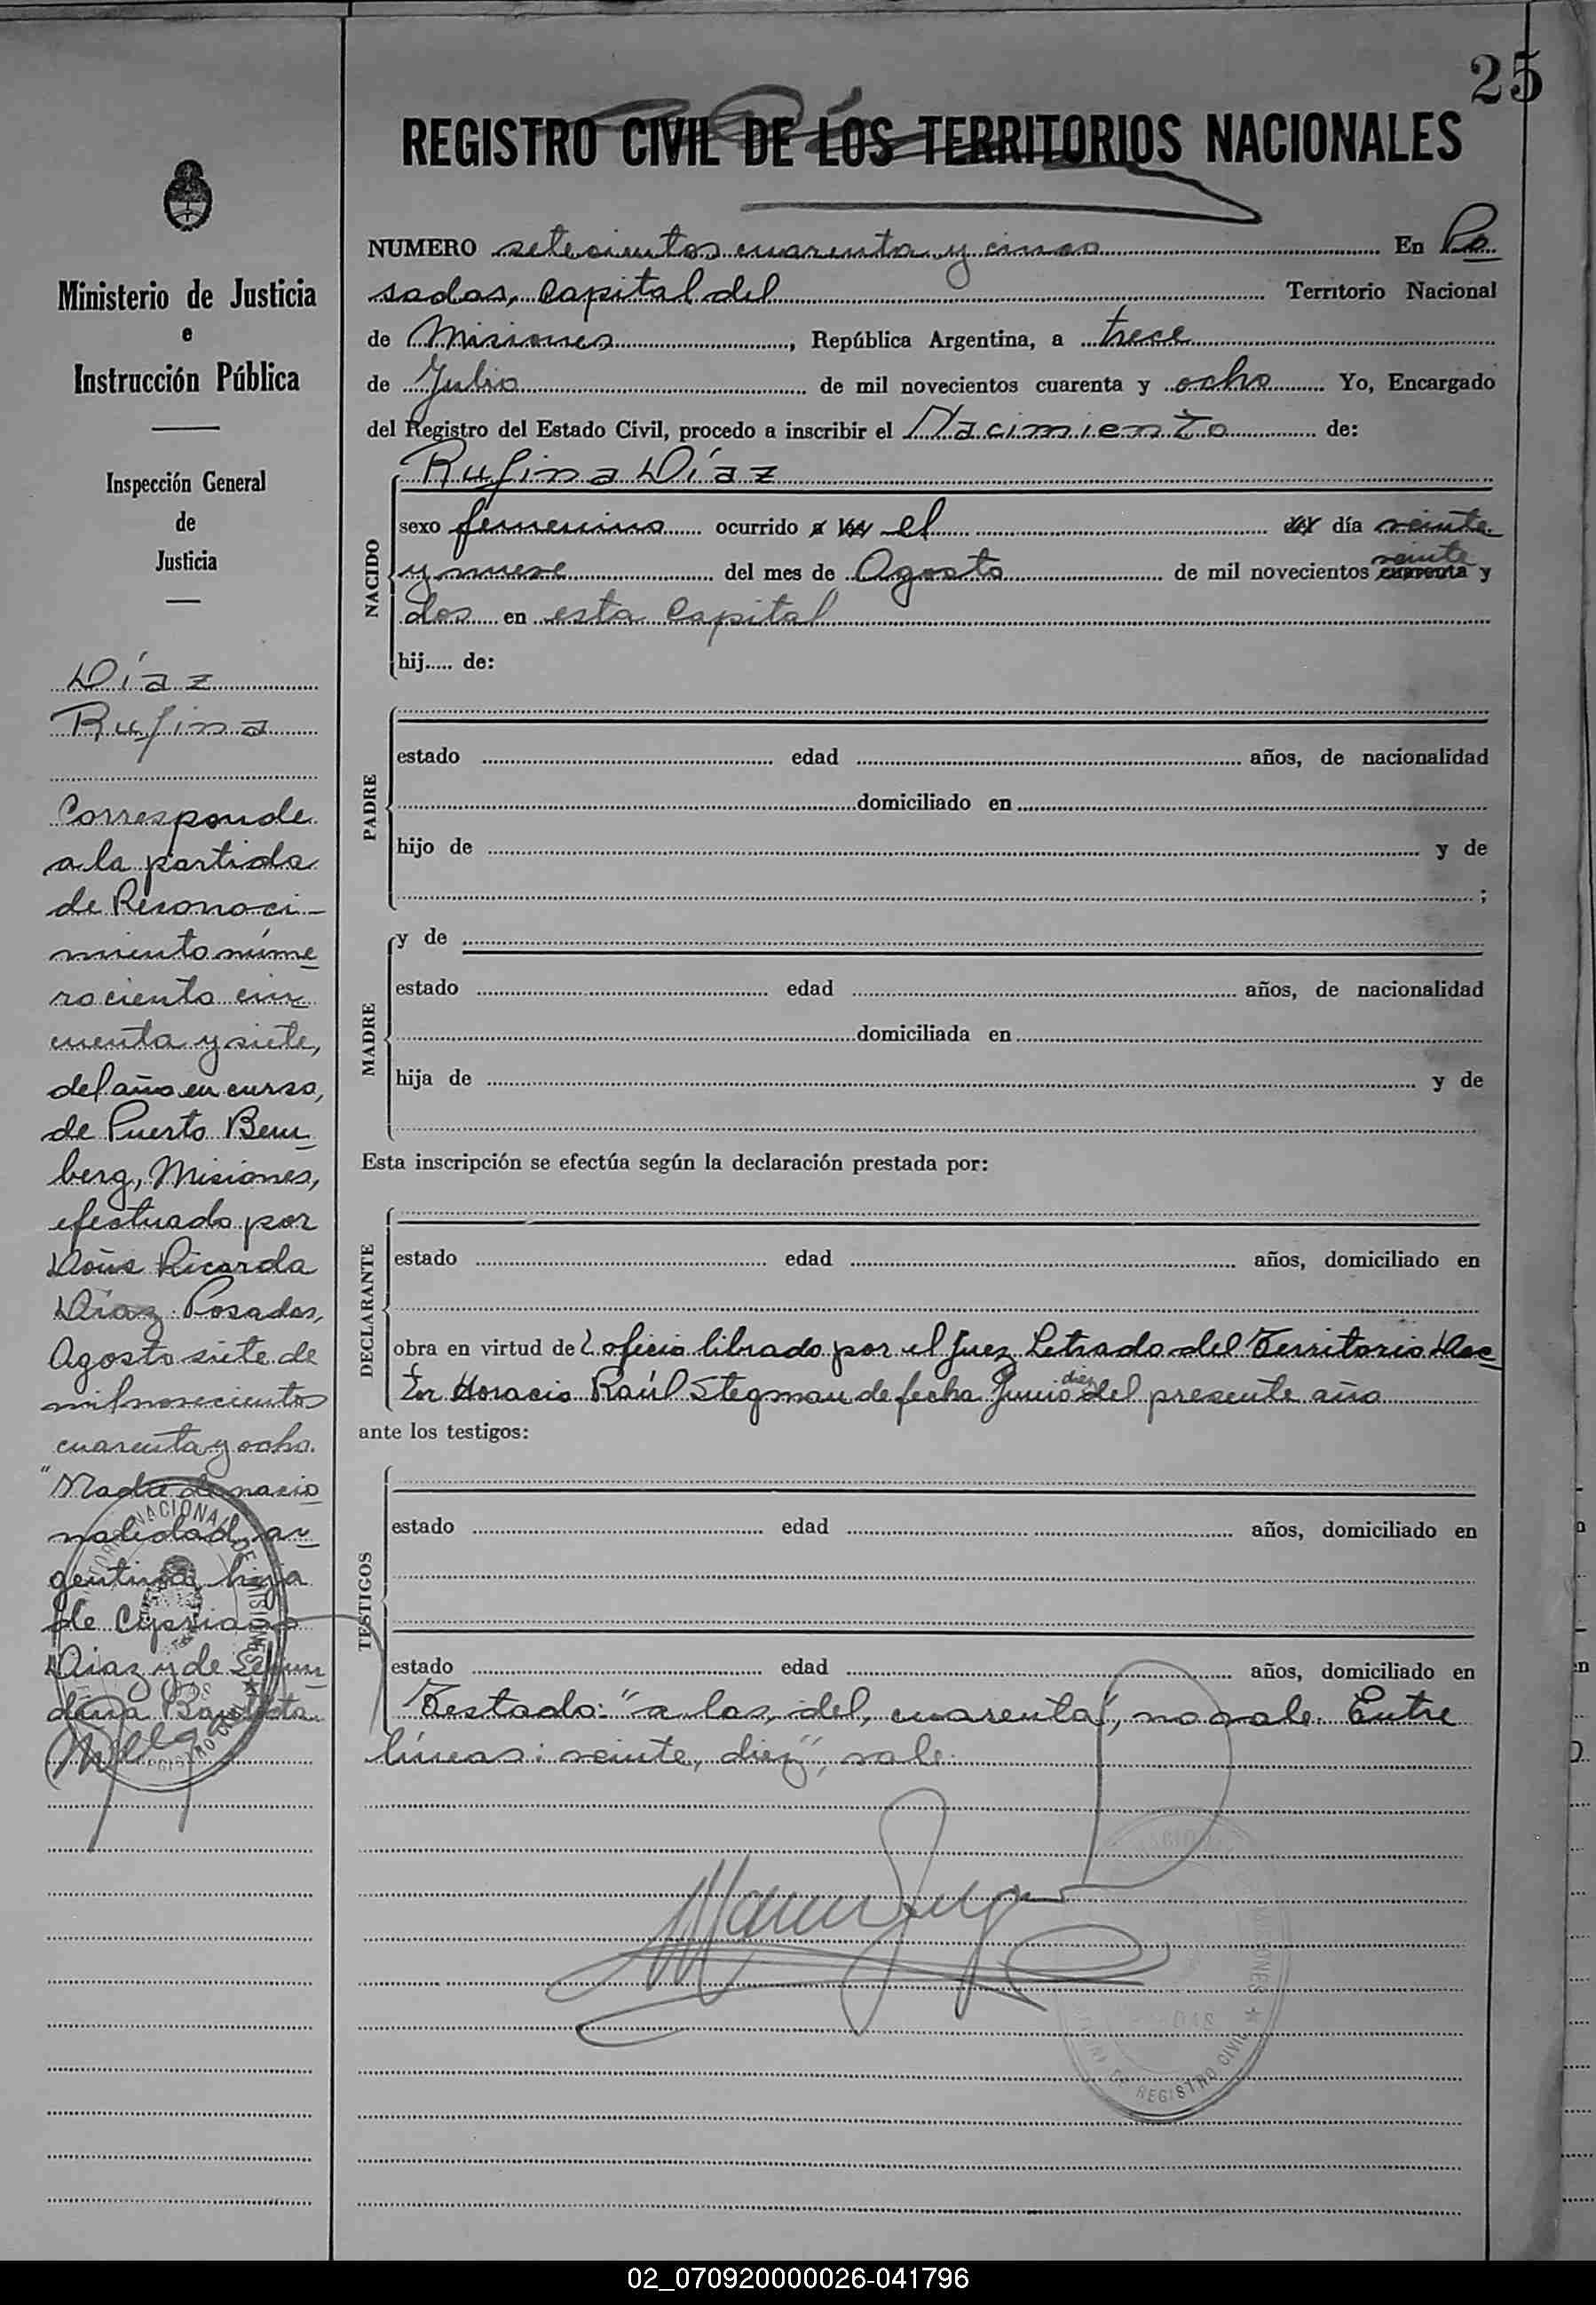 25
REGISTRO CIVIL DE LOS TERRITORIOS NACIONALES
Ministerio de Justicia
e
Instrucción Pública
Inspección General
de
Justicia
Díaz
Rufina
Corresponde
a la partida
de Reconoci-
miento núme
ro ciento cin
cuenta y siete,
del año en curso,
de Puerto Bem
berg, Misiones,
efectuado por
Doña Ricarda
Díaz. Posadas,
Agosto siete de
mil novecientos
cuarenta y ocho.
"Madre de nacio
nalidad ar
gentina, hija
de Cipriano
Diaz y de Segun
dina Bautista.
NUMERO setecientos cuarenta y cinco En Po
sadas, Capital del Territorio Nacional
de Misiones, República Argentina, a trece
de Julio de mil novecientos cuarenta y ocho Yo, Encargado
del Registro del Estado Civil, procedo a inscribir el Nacimiento de:
NACIDO
Rufina Díaz
sexo femenino ocurrido a las el del día veinte
y nueve del mes de Agosto de mil novecientos cuarenta veinte y
dos en esta Capital
hij..... de:
PADRE
estado edad años, de nacionalidad
domiciliado en
hijo de y de
;
MADRE
y de
estado edad años, de nacionalidad
domiciliada en
hija de y de
Esta inscripción se efectúa según la declaración prestada por:
DECLARANTE
estado edad años, domiciliado en
obra en virtud del oficio librado por el Juez Letrado del Territorio Doc
tor Horacio Raúl Stegman de fecha Junio diez del presente año
ante los testigos:
TESTIGOS
estado edad años, domiciliado en
estado edad años, domiciliado en
Testado: "a las, del, cuarenta", no vale. Entre
líneas: veinte, diez", vale.
REGISTRO CIVIL
02_070920000026-041796